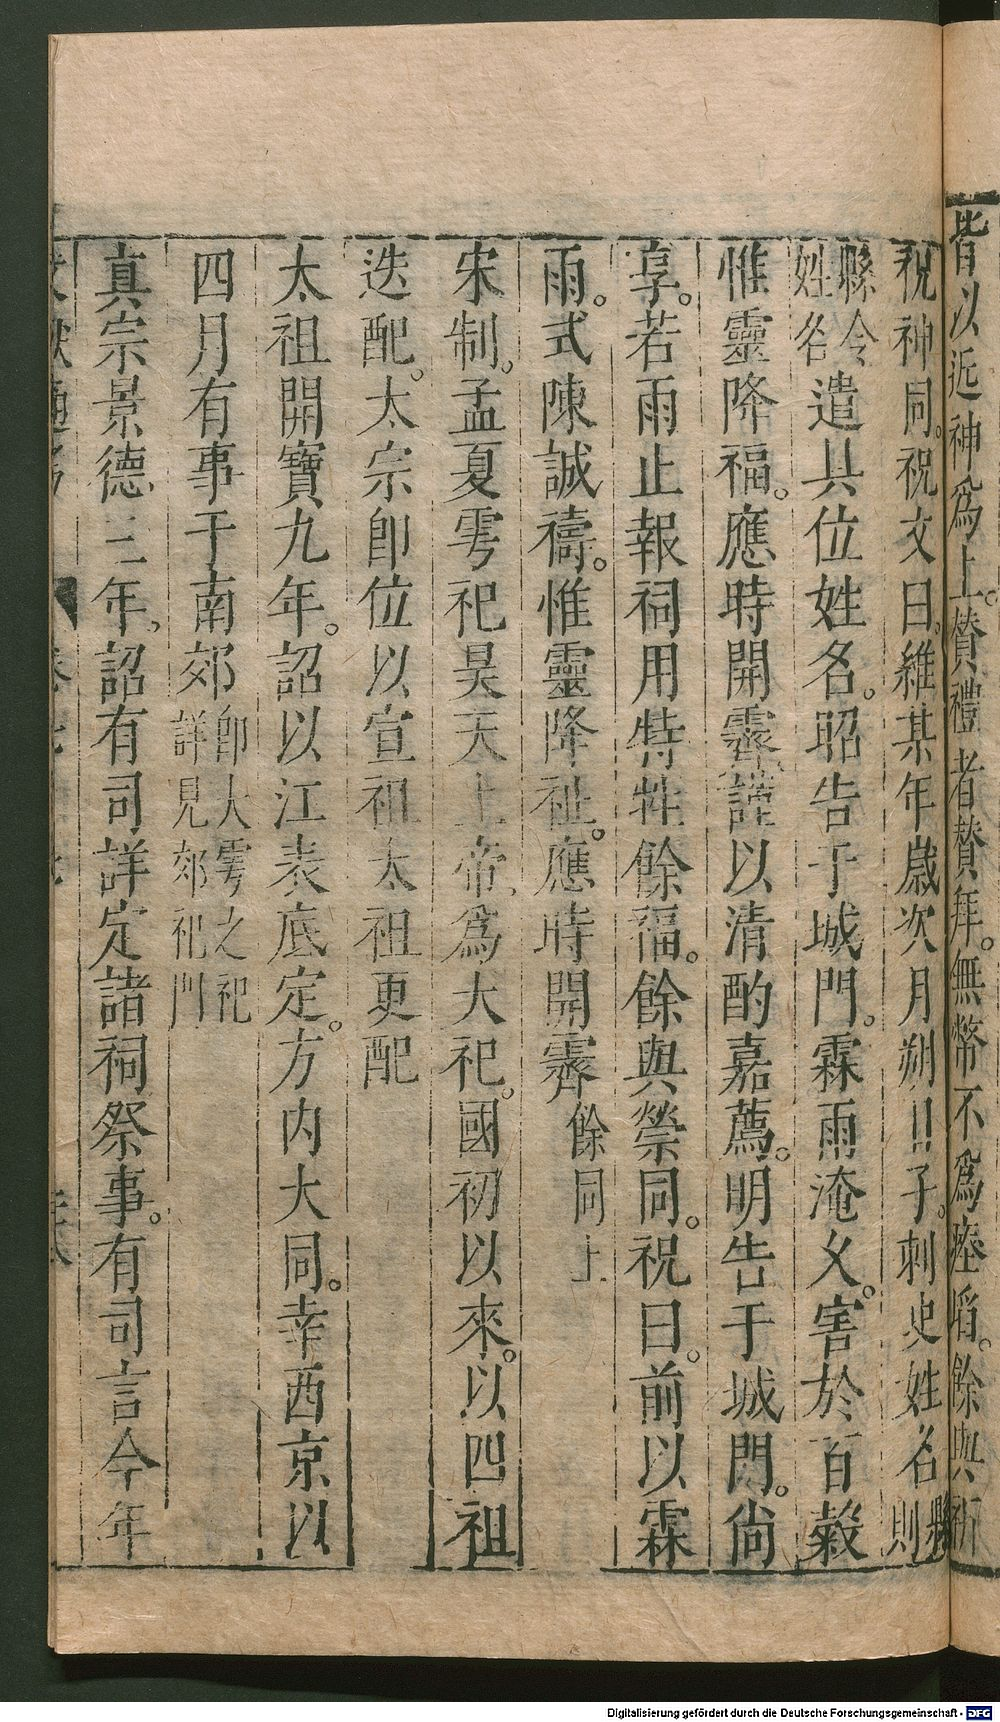 皆以近神爲上。贊禮者贊拜。無幣不爲瘞埳。餘與祈
稅神同。祝文曰。維某年歲次月朔日子。刺史姓名縣則
縣令姓名遣具位姓名。昭告于城門。霖雨淹久。害於百穀
惟靈降福。應時開霽。謹以清酌嘉薦。明告于城門。尙
享。若雨止報祠用特牲餘福。餘與禜同。祝曰。前以霖
雨。式陳誠禱。惟靈降祉。應時開霽餘同上
宋制。孟夏雩祀昊天上帝、爲大祀。國初以來。以四祖
迭配。太宗卽位以宣祖太祖更配
太祖開寶九年。詔以江表底定。方内大同。幸西京以
四月有事于南郊卽大雩之祀詳見郊祀門
真宗景德三年、詔有司詳定諸祠祭事。有司言今年
文獻通考 卷七十七
Digitalisierung gefördert durch die Deutsche Forschungsgemeinschaft - DFG